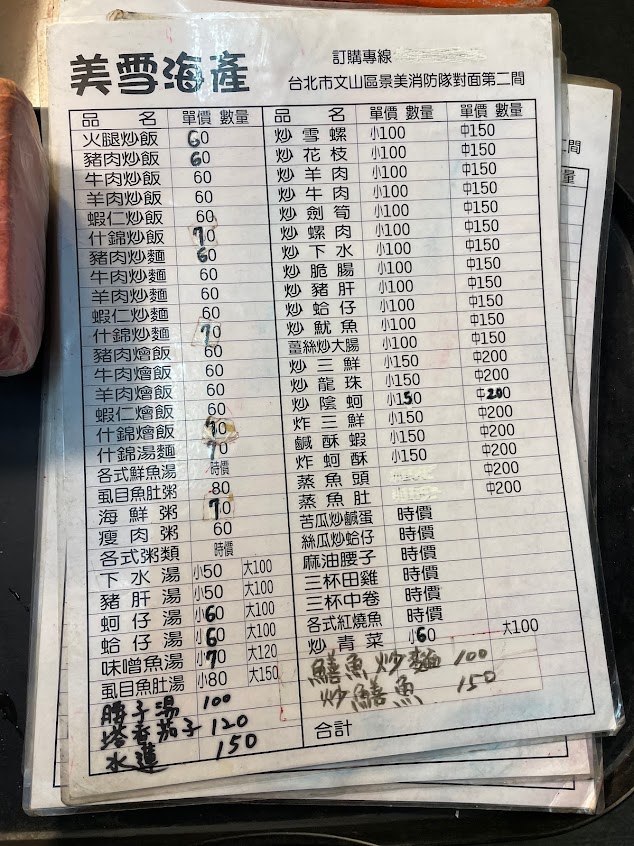 美雪海產
訂購專線
台北市文山區景美消防隊對面第二間
品名 單價 數量
火腿炒飯 60
豬肉炒飯 60
牛肉炒飯 60
羊肉炒飯 60
蝦仁炒飯 60
什錦炒飯 70
豬肉炒麵 60
牛肉炒麵 60
羊肉炒麵 60
蝦仁炒麵 60
什錦炒麵 70
豬肉燴飯 60
牛肉燴飯 60
羊肉燴飯 60
蝦仁燴飯 60
什錦燴飯 70
什錦湯麵 70
各式鮮魚湯 時價
虱目魚肚粥 80
海鮮粥 70
瘦肉粥 60
各式粥類 時價
下水湯 小50 大100
豬肝湯 小50 大100
蚵仔湯 小60 大100
蛤仔湯 小60 大100
味噌魚湯 小70 大120
虱目魚肚湯 小80 大150
腰子湯 100
塔香茄子 120
水蓮 150
品名 單價 數量
炒雪螺 小100 中150
炒花枝 小100 中150
炒羊肉 小100 中150
炒牛肉 小100 中150
炒劍筍 小100 中150
炒螺肉 小100 中150
炒下水 小100 中150
炒脆腸 小100 中150
炒豬肝 小100 中150
炒蛤仔 小100 中150
炒魷魚 小100 中150
薑絲炒大腸 小100 中150
炒三鮮 小150 中200
炒龍珠 小150 中200
炒陰蚵 小150 中200
炸三鮮 小150 中200
鹹酥蝦 小150 中200
炸蚵酥 小150 中200
蒸魚頭 中200
蒸魚肚 中200
苦瓜炒鹹蛋 時價
絲瓜炒蛤仔 時價
麻油腰子 時價
三杯田雞 時價
三杯中卷 時價
各式紅燒魚 時價
炒青菜 小60 大100
鱔魚炒麵 100
炒鱔魚 150
合計
間
量